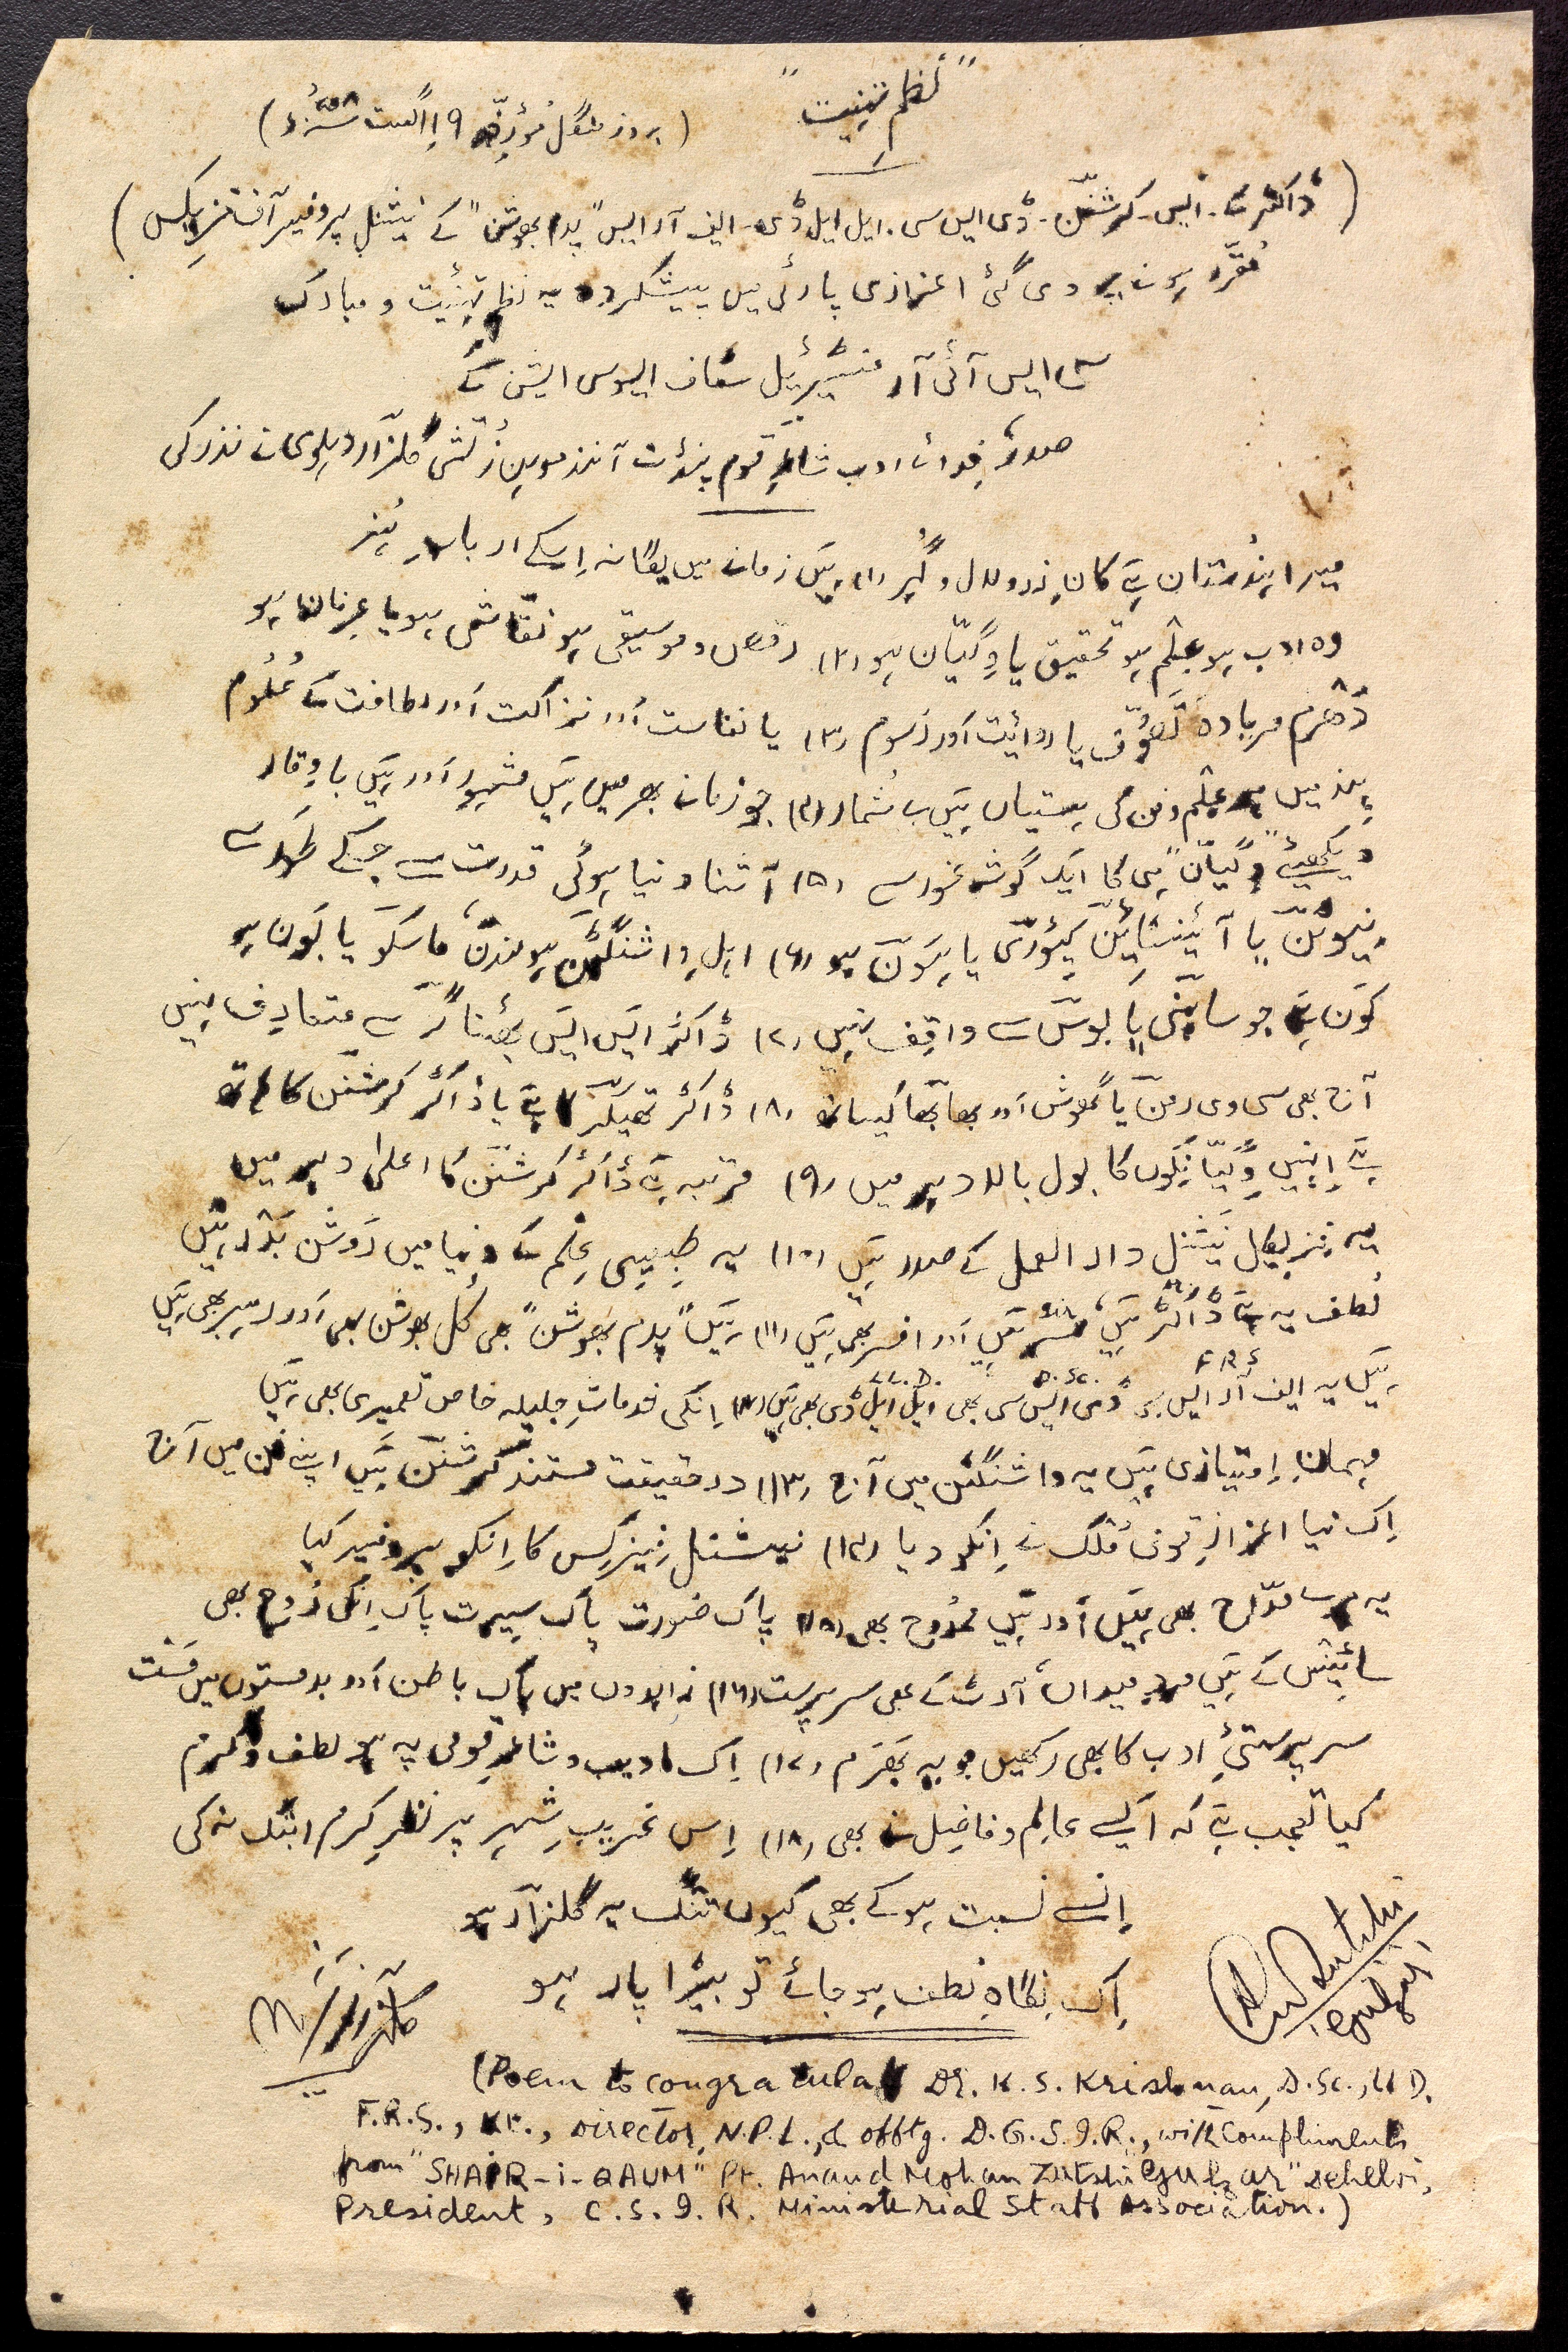 "نظم تہنیت"
(بروز منگل مؤرخہ ۱۹ اگست ۵۸ء)
(ڈاکٹر کے۔ ایس۔ کرشنن۔ ڈی ایس سی۔ ایل ایل ڈی۔ ایف آر ایس "پدم بھوشن" کے نیشنل پروفیسر آف فزیکس)
مقرر ہونے پر دی گئی اعزازی پارٹی میں پیشکردہ یہ نظم تہنیت و مبارک
سی ایس آئی آر منسٹیریئل سٹاف ایسوسی ایشن کے
صدر، فدائے ادب شاعرِ قوم پنڈت آنند موہن زُتشی گلزار دہلوی نے نذر کی
میرا ہندُستان ہے کانِ زر و لعل و گہر (۱) ہیں زمانے میں یگانہ اِسکے اربابِ ہُنر
وہ ادب ہو عِلم ہو تحقیق یا وِگیان ہو (۲) رقص و موسیقی ہو نقاشی ہو یا عرفان ہو
دھرم مریادہ تصوُّف یا روائیت اور رسوم (۳) یا نفاست اور نزاکت اور لطافت کے عُلُوم
ہند میں ہر عِلم و فن کی ہستیاں ہیں بے شمار (۴) جو زمانے بھر میں ہیں مشہور اور ہیں باوقار
دیکھیئے "وِگیان" ہی کا ایک گوشہ غور سے (۵) آشنا دنیا ہوئی قدرت سے جسکے طَور سے
نیوٹن یا آئینسٹائین کیوری یا ہَون ہو (۶) اہلِ واشنگٹن ہو لندن، ماسکو یا بَون ہو
کَون ہے جو ساہنی یا بوس سے واقف نہیں (۷) ڈاکٹر ایس ایس بھٹناگر سے متعارِف نہیں
آج بھی سی وی رمن یا گھوش اور بھابھا کیساتھ (۸) ڈاکٹر تھیکر کا ہے یا ڈاکٹر کرشنن کا ہاتھ
ہے اِنہیں وِگیانِکوں کا بول بالا دہر میں (۹) مرتبہ ہے ڈاکٹر کرشنن کا اعلیٰ دہر میں
یہ فزیکل نیشنل دار العمل کے صدر ہیں (۱۰) یہ طبیعی عِلم کے دنیا میں رَوشن بَدر ہیں
لُطف یہ ہے ڈاکٹر ہیں، سَر ہیں اور افسر بھی ہیں (۱۱) ہیں "پدم بھوشن" بھی کُل بھوشن بھی اور رہبر بھی ہیں
Sir
F.R.S D.Sc. LL.D.
ہیں یہ ایف آر ایس بھی ڈی ایس سی بھی ایل ایل ڈی بھی ہیں (۱۲) اِنکی خدماتِ جلیلہ خاص تعمیری بھی ہیں
مہمانِ اِمتیازی ہیں یہ واشنگٹن میں آج (۱۳) درحقیقت مستند کرشنن ہیں اپنے فن میں آج
اِک نیا اعزازِ قومی مُلک نے اِنکو دیا (۱۴) نیشنل فیزکِس کا اِنکو پروفیسر کیا
یہ مرے مدّاح بھی ہیں اور ہیں ممدُوح بھی (۱۵) پاک صُورت پاک سیرت پاک اِنکی رُوح بھی
سائینس کے ہیں مردِ میداں، آرٹ کے بھی سرپرست (۱۶) زاہدوں میں پاک باطن اور بدمستوں میں مَست
سرپرستیٔ ادب کا بھی رکھیں جو یہ بھَرَم (۱۷) اِک ادیب و شاعرِ قومی پہ ہو لطف و کرم
کیا تعجب ہے کہ ایسے عالِم و فاضِل نے بھی (۱۸) اِس غریبِ شہر پر نظرِ کرم ابتک نہ کی
اِنسے نسبت ہو کے بھی کیوں تنگ یہ گلزار ہو
اِک نِگاہِ لطف ہو جائے تو بیڑا پار ہو
(Poem to congratulate Dr. K. S. Krishnan, D.Sc., LL D.
F.R.S., Kt., Director, N.P.L., & offtg. D.G.S.I.R., with compliments
from "SHAIR-i-QAUM" Pt. Anand Mohan Zutshi "Gulzar" Dehelvi,
President, C.S.I.R. Ministerial Staff Association.)